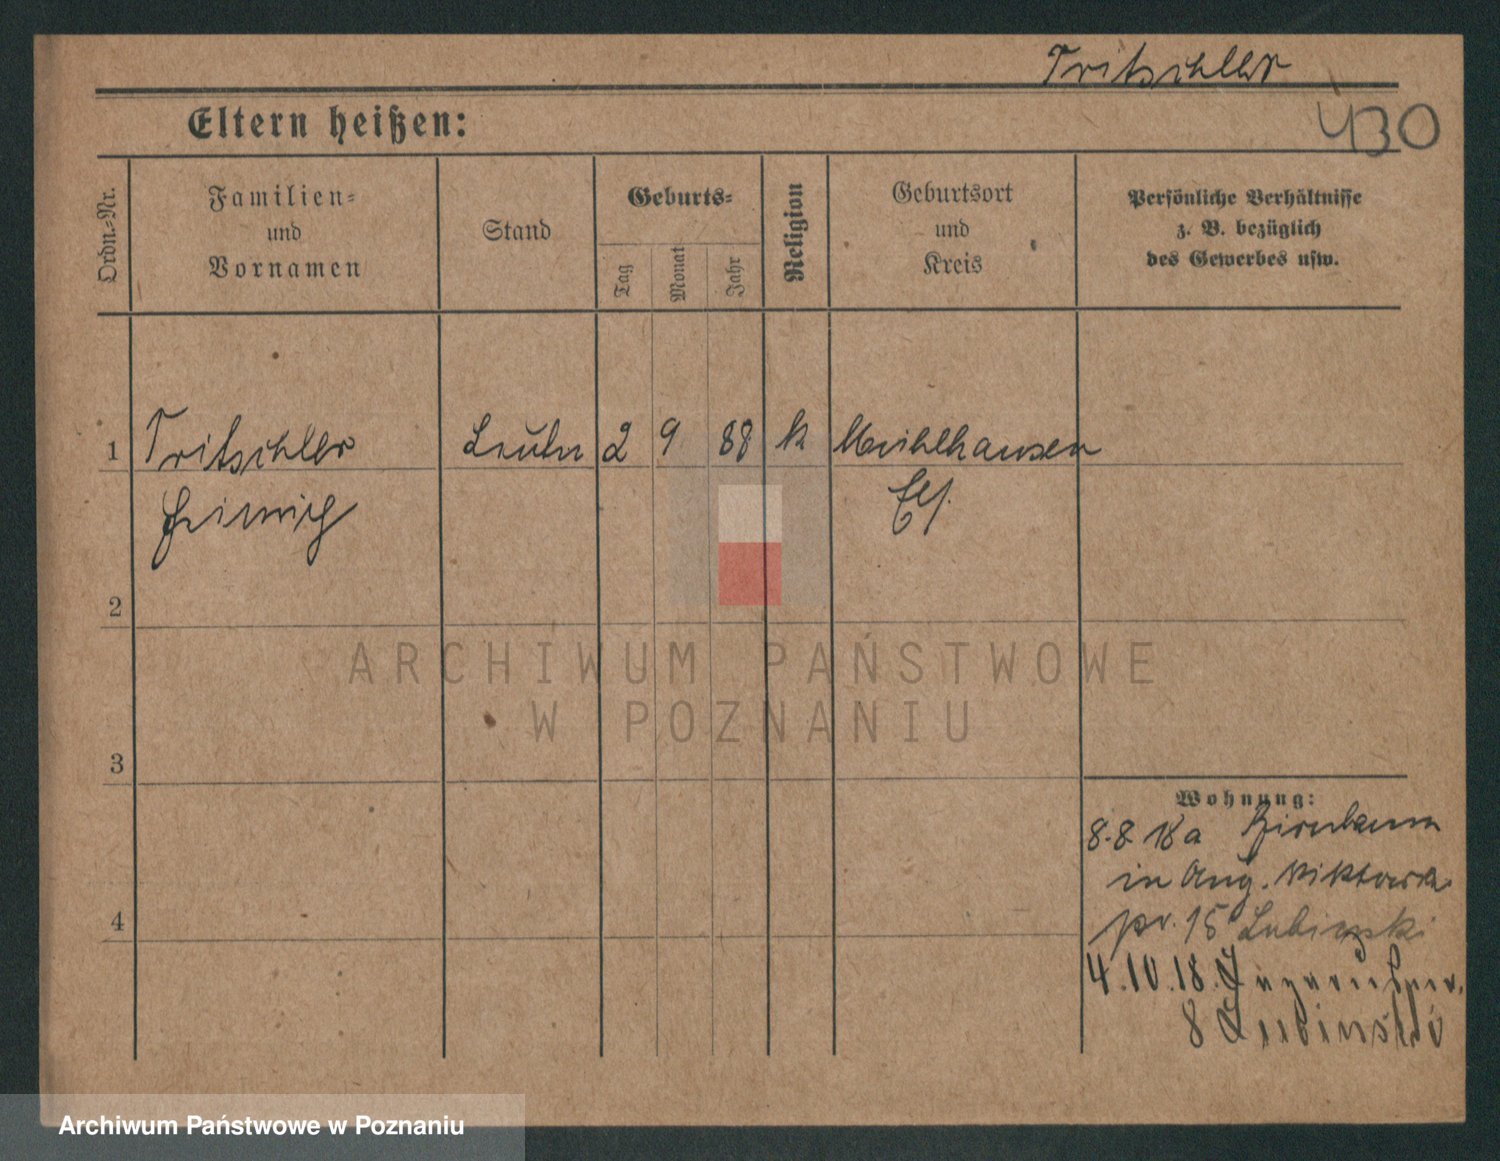 Tritschller
430
Eltern heißen:
Ordn.-Nr.
Familien-
und
Vornamen
Stand
Geburts-
Tag
Monat
Jahr
Religion
Geburtsort
und
Kreis
Persönliche Verhältnisse
z. B. bezüglich
des Gewerbes usw.
1 Tritschller 2 9 88 k Mühlhausen
Heinrich Els.
2
ARCHIWUM PAŃSTWOWE
W POZNANIU
3
Wohnung:
8.8.18 a Birnbaum
in Aug. Viktoria
pr. 15 Lubinski
4.10.18.
8 Lubinski
4
Archiwum Państwowe w Poznaniu